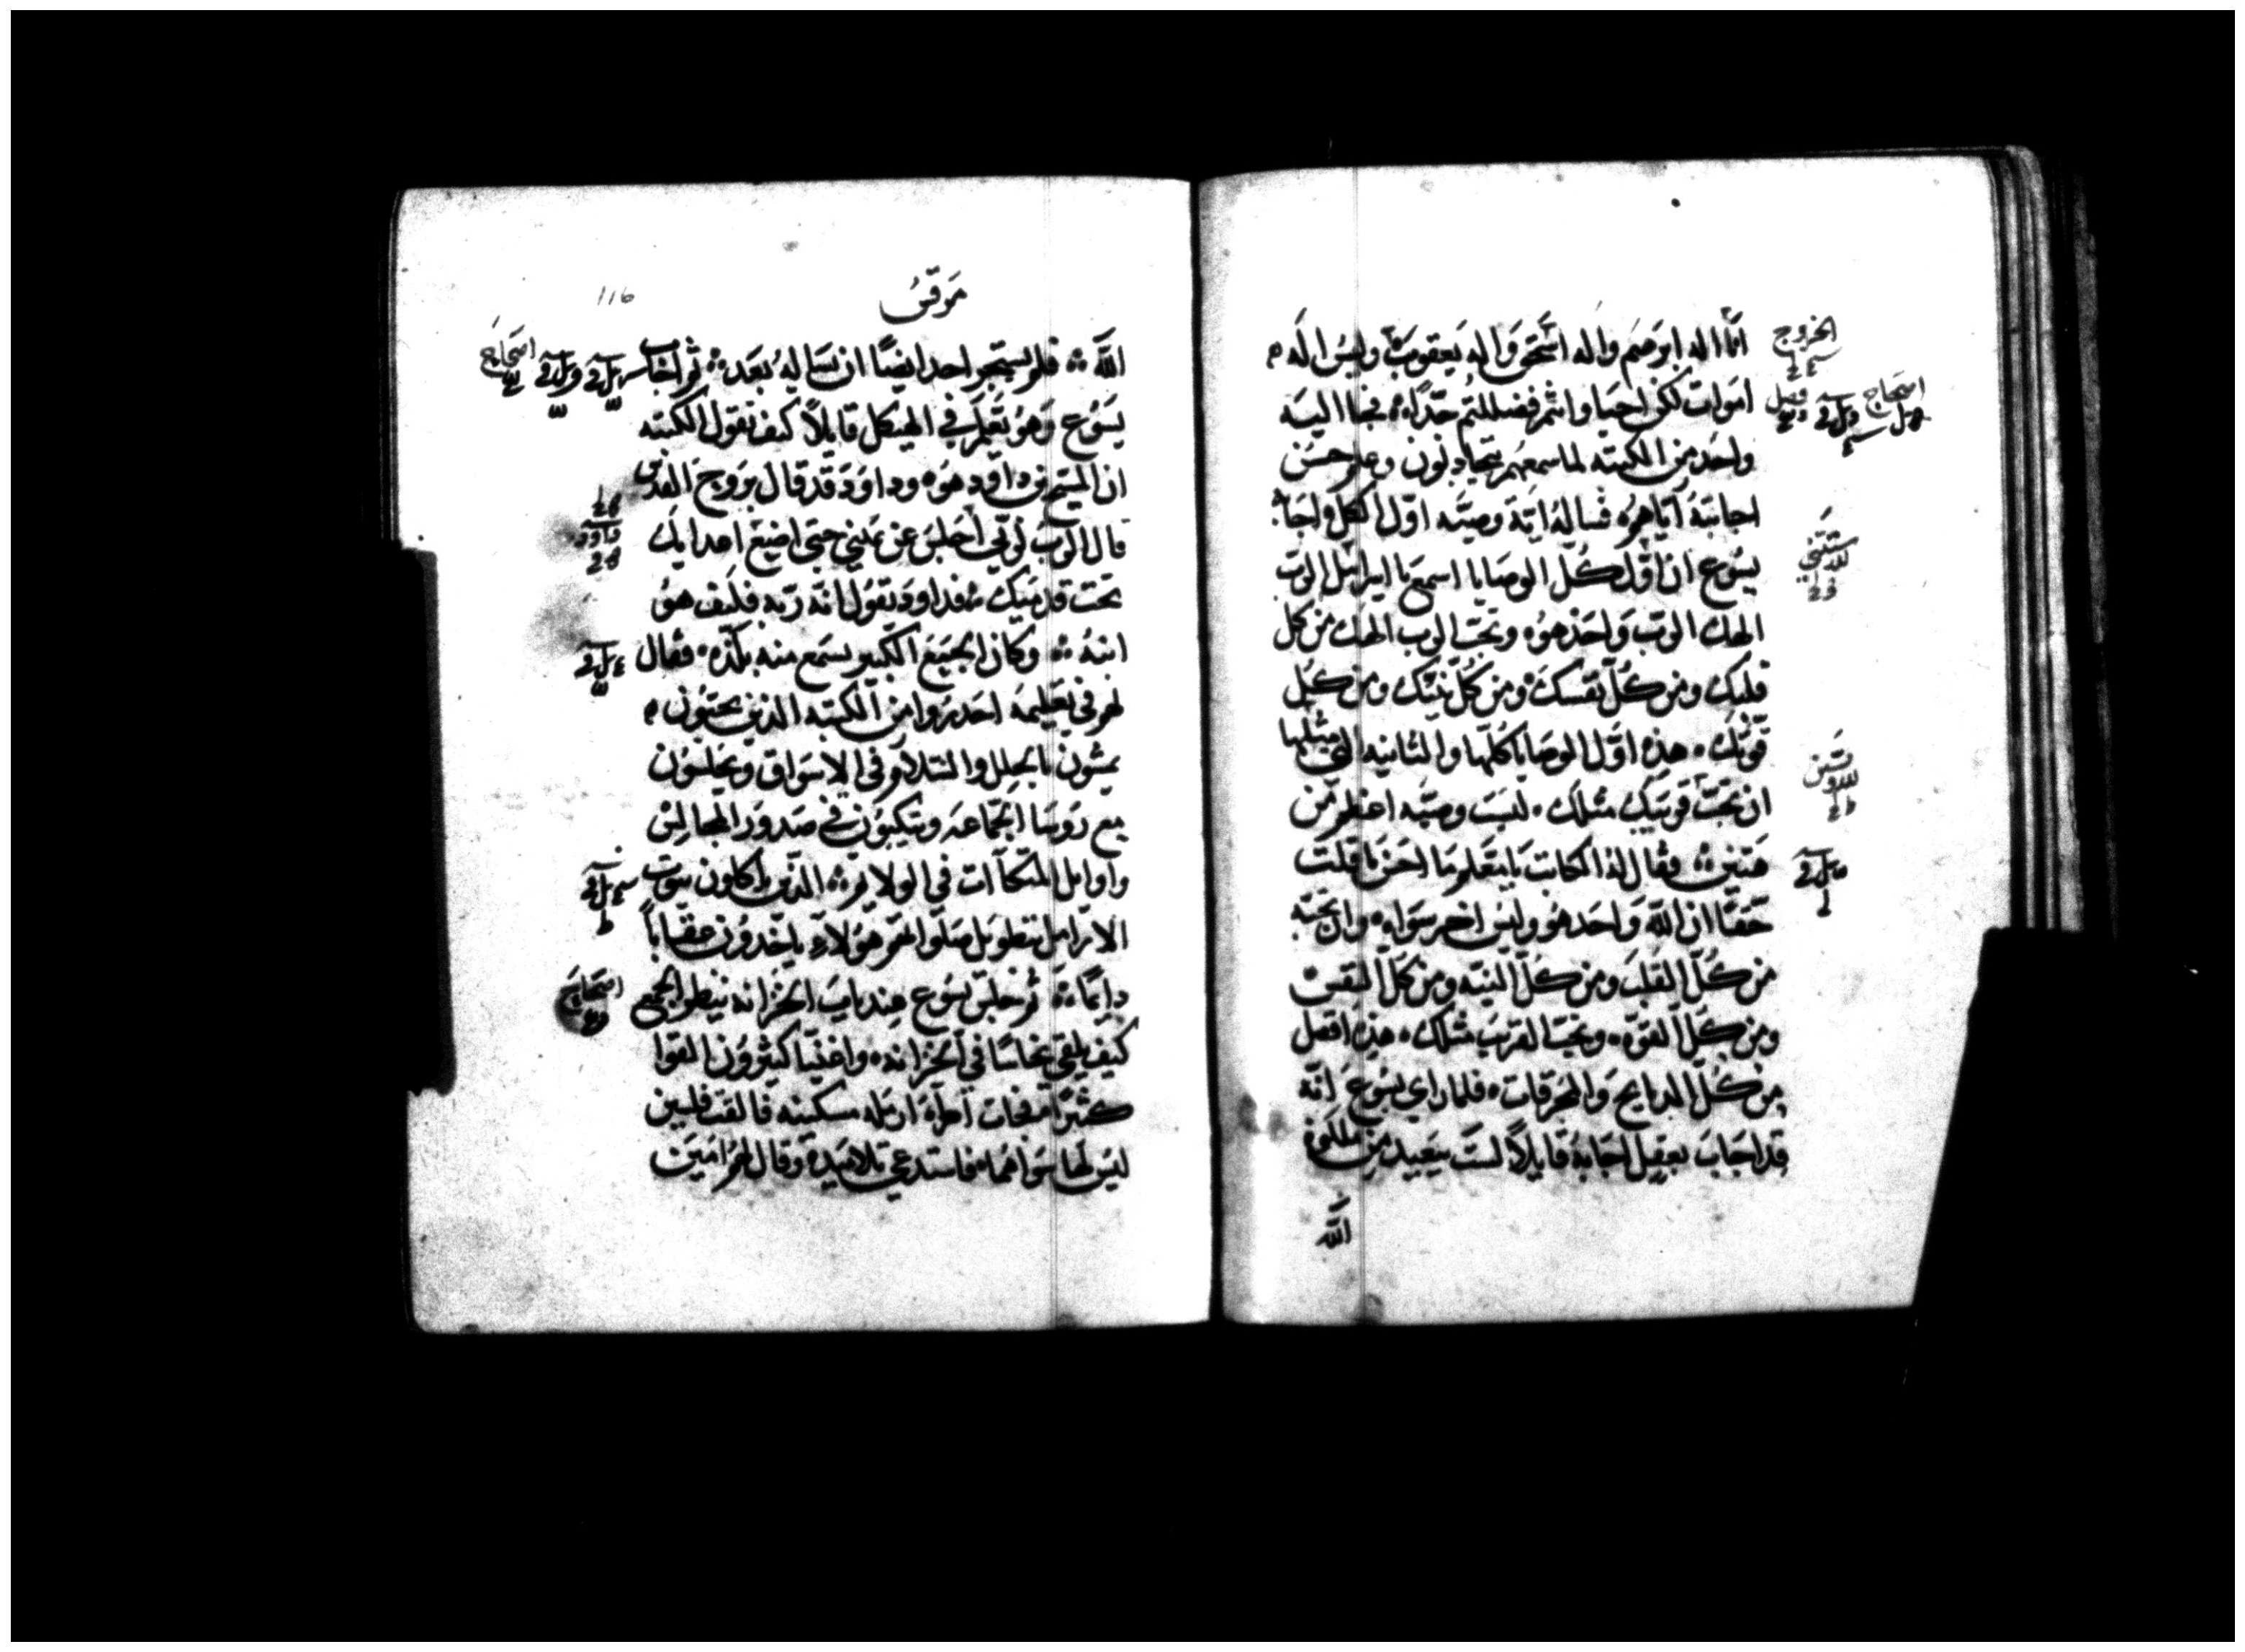 انا اله ابرهيم واله اسحق واله يعقوب وليس اله
اموات لكن احيا وانتم فضللتم جدًا فجا اليه
واحد من الكتبه لما سمعهم يتجادلون وعلم حسن
اجابتهُ اياهم فساله اية وصيّه اوّل الكل فاجاب
يسُوع ان اوّل كُلّ الوصايا اسمع يا اسرايل الرب
الهك الربّ واحد هوُ وتحبّ الرب الهك من كل
قلبك ومن كُلّ نفسك ومن كُلّ نيّتك ومن كُل
قوّتك هذه اوّل الوصايا كلّها والثانيه التي مثلها
ان تحبّ قريبك مثلك ليس وصيّه اعظم من
هتين فقال لهُ الكاتب يا معلم ما احسن ما قلت
حقًا ان اللّه واحد هو وليس اخر سواه وان تحبّه
من كُلّ القلب ومن كُلّ النيّه ومن كلّ النفس
ومن كُلّ القوّه وتحبّ القريب مثلك هذه افضل
من كُلّ الدبايح والمحرقات فلما راى يسُوع انّه
قد اجاب بعقل اجابهُ قايلاً لست ببعيد من ملكوة
اللّه
الخروج
اصحاح
فصل
مرقس
116
اللّه فلم يستجر احد ايضًا ان يساله بُعد ثم اجاب
يسُوع وهو يُعلّم في الهيكل قايلاً كيف تقول الكتبه
ان المسيح بن داود هوُ وداوود قد قال بروح القدس
قال الربّ لربّي اجلس عن يميني حتى اضع اعدايك
تحت قدميك فداوود يقول انّه ربّه فكيف هوُ
ابنهُ وكان الجميع الكبير يسمع منه بلذّه فقال
لهم في تعليمه احدروا من الكتبه الذين يحبّون
يمشون بالحلل والسلام في الاسواق ويجلسُون
مع روسا الجماعه ويتكيون في صدور المجالس
واوايل المتكاات في الولايم الذين ياكلون بيوت
الارامل بتطويل صلواتهم هوُلاء ياخدون عقابًا
دايمًا ثم جلس يسوع عند باب الخزانه ينظر الجميع
كيف يلقي نحاسًا في الخزانه واغنيّا كثيرون القوا
كثيرًا فجات امراة ارمله مسكينه فالقت فلسين
ليس لها سواهُما فاستدعي تلاميده وقال لهُم امين
اصحاح
داوود
اصحاح